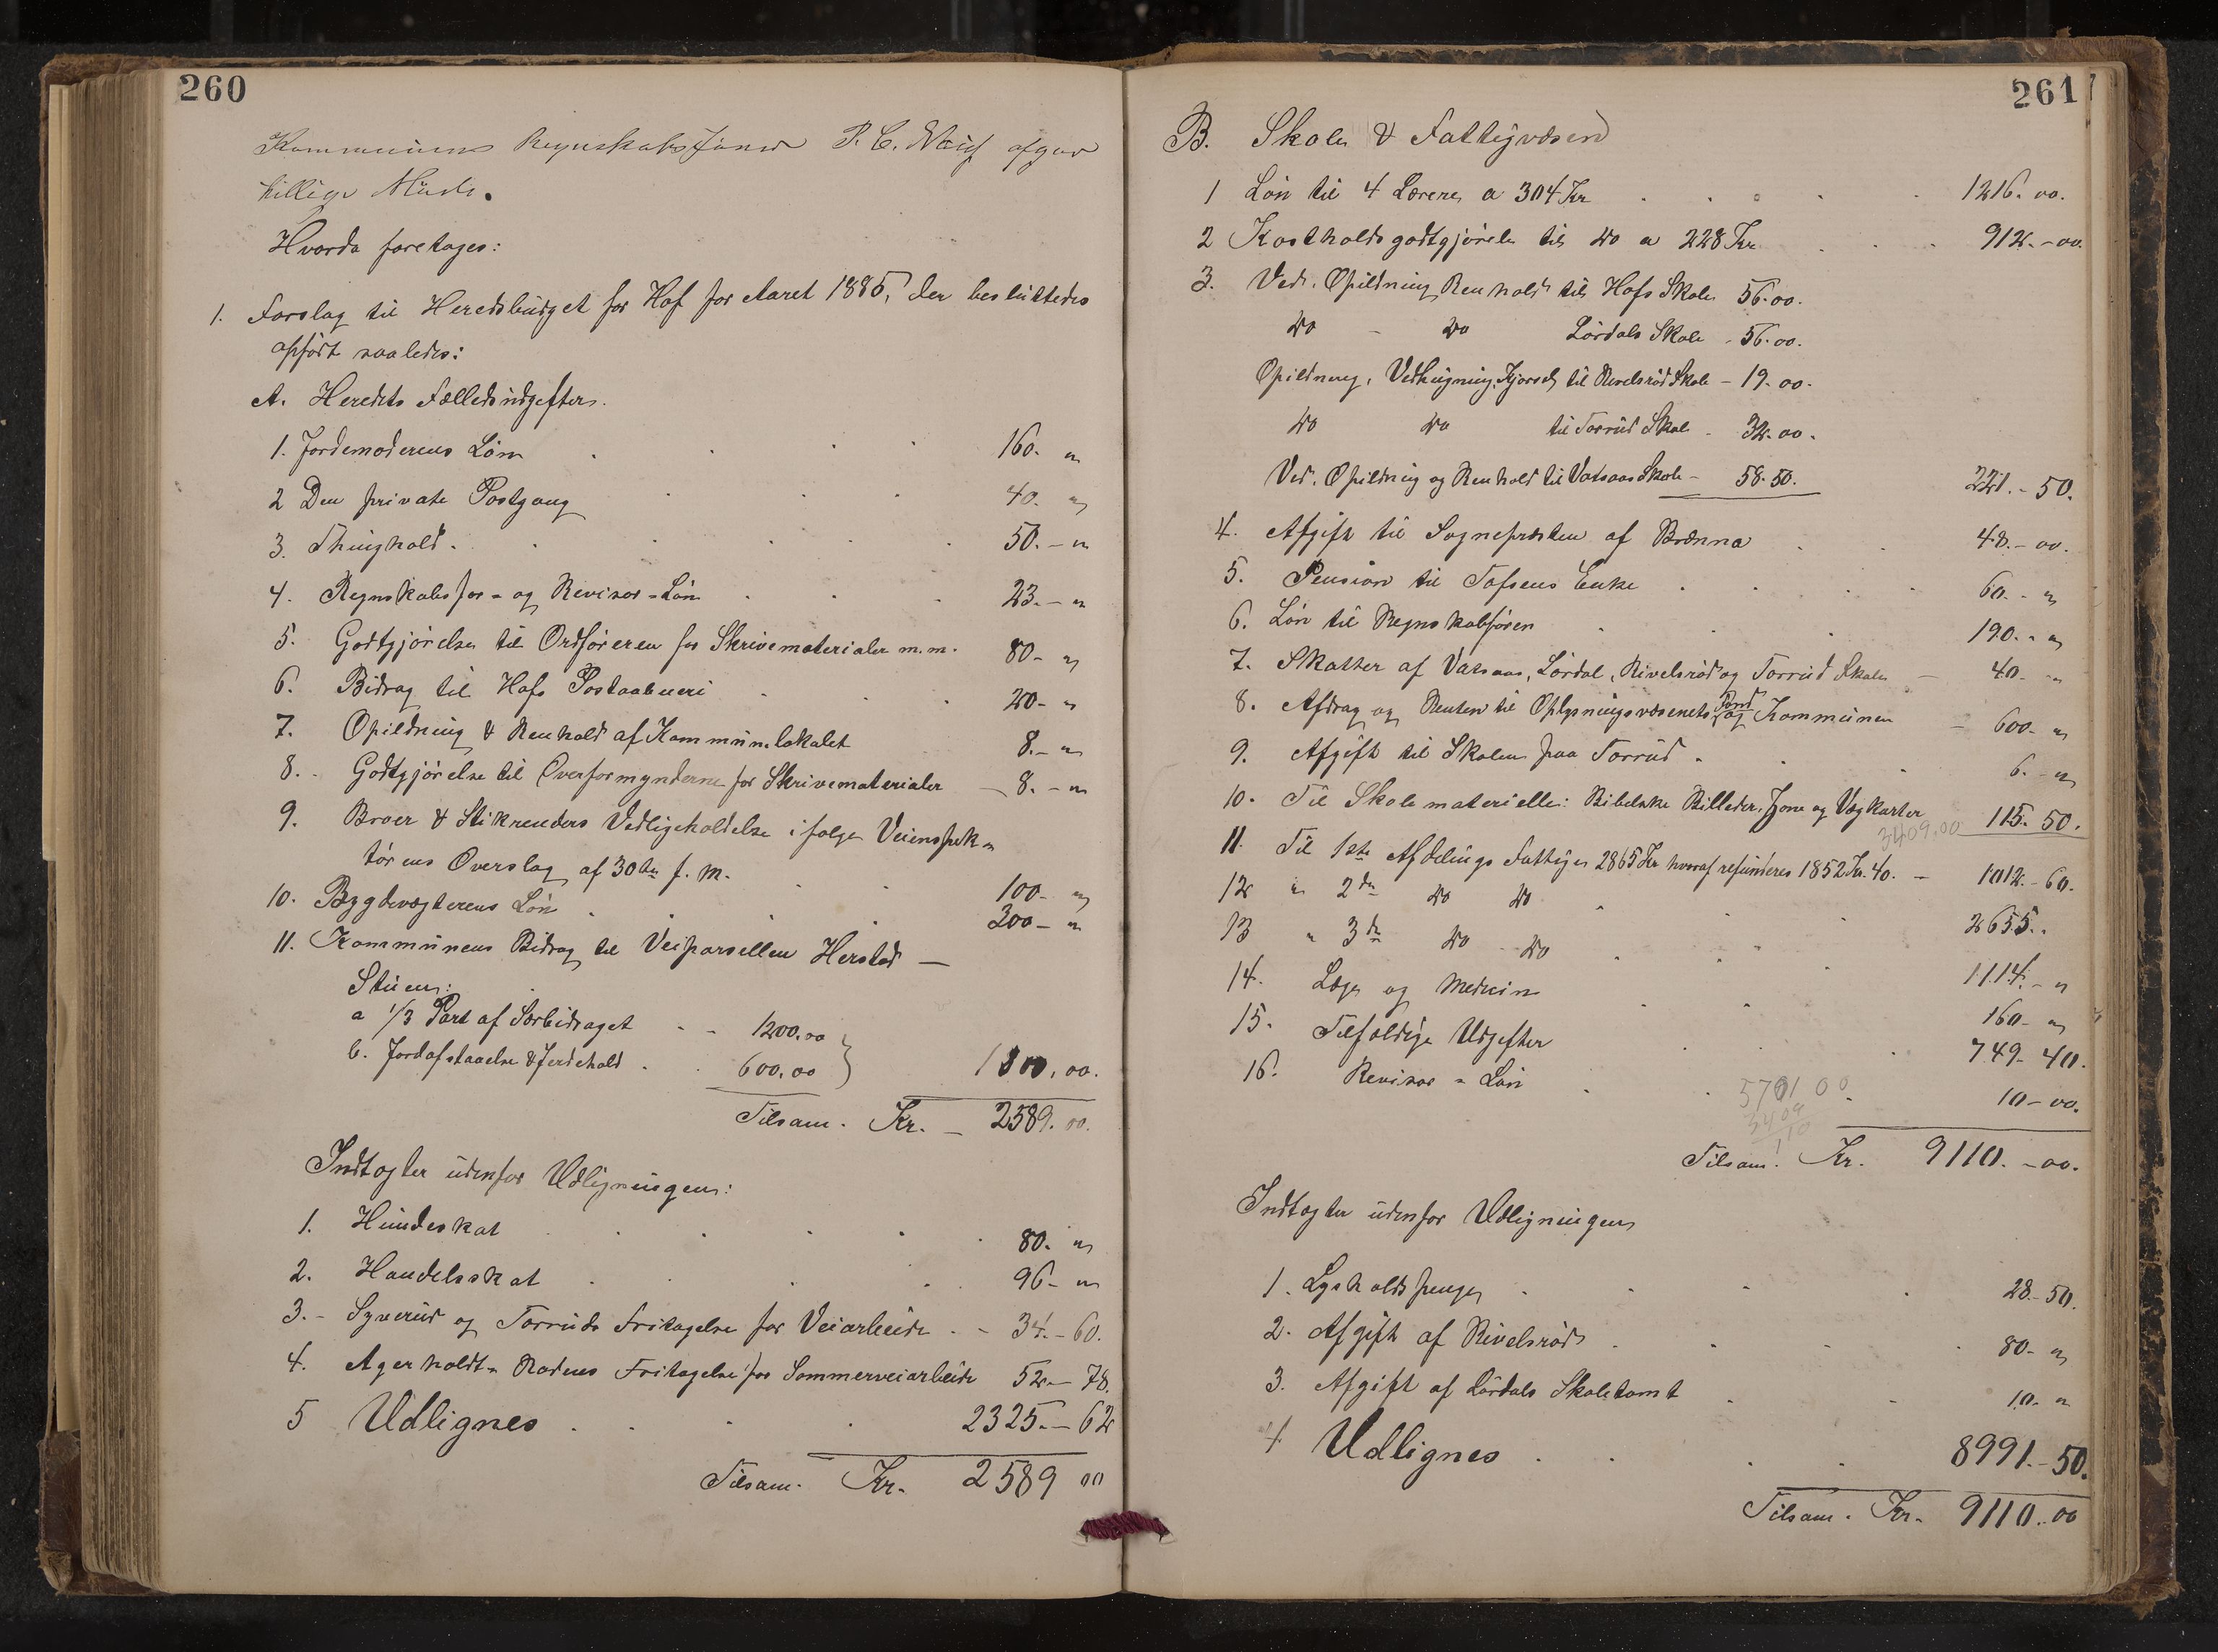 260
Kommunens Regnskabsfører P. C. afgav
billige Møde.
Hvorda foretoges:
1. Forslag til Heredsbudget for Hof for Aaret 1885, der besluttedes
opført saaledes:
A. Heredets Fælledsudgifter.
1. Jordemoderens Løn 160. "
2 Den private Postgang 40. "
3. Thinghold. 50. - "
4. Regnskabsfør- og Revisor-Løn 23. - "
5. Godtgjørelse til Ordføreren for Skrivematerialer m.m. 80 - "
6. Bidrag til Hofs Postaabneri 20 - "
7. Opildning & Renhold af Kommunelokalet 8. - "
8. Godtgjørelse til Overformynderne for Skrivematerialer - 8. - "
9. Broer & Stikrenders Vedligeholdelse ifølge Veiinspek-
tørens Overslag af 30te f. M. 100 - "
10. Bygdevægterens Løn 300 - "
11. Kommunens Bidrag til Veiparsellen Herstad -
Stuen:
a 1/3 Part af Særbidraget - - 1200,00
b. Jordafstaaelse & Jerdehold . 600,00 } 1800,00.
Tilsam. Kr. - 2589.00.
Indtægter udenfor Udligningen:
1. Hundeskat 80. "
2. Handelsskat 96 - "
3. - Syverud og Torruds Fritagelse for Veiarbeide . - 34. - 60.
4. Agerholdt-Rodens Fritagelse for Sommerveiarbeide 52 - 78.
5 Udlignes 2325. - 62
Tilsam. Kr. 2589 00
261
B. Skole & Fattigvæsen
1 Løn til 4 Lærere a 304 Kr 1216. 00.
2 Kostholdsgodtgjørelse til do a 228 Kr 912. - 00
3. Ved, Opildning, Renhold til Hofs Skole 56.00.
do - do Lørdals Skole - 56.00.
Opildning, Vedhugning, Kjørsel til Rivelsrød Skole - 19.00.
do do til Torrud Skole - 32.00.
Ved, Opildning og Renhold til Vatsaas Skole - 58.50. 221. - 50.
4. Afgift til Sognepræsten af Brænna 48. - 00.
5. Pension til Tofsens Enke 60. - "
6. Løn til Regnskabsføren 190. - "
7. Skatter af Vatsaas, Lørdal, Rivelsrød og Torrud Skole - 40. - "
8. Afdrag og Renter til Oplysningsvæsenets Fond og Kommunen - 600 - "
9. Afgift til Skolen paa Torrud . 6. - "
10. Til Skolemateriell: Bibelske Billeder, Zone og Vægkarter 115. 50.
3409.00
11. Til 1ste Afdelings Fattige 2865 Kr hvoraf refunderes 1852 Kr. 40. - 1012. - 60.
12 " 2den do do 2655. .
13 " 3de do - do 1114. - "
14. Læge og Medicin 160 - "
15. Tilfældige Udgifter 749 - 40.
16. Revisor-Løn 10 - 00.
5701 00
3409
Tilsam. Kr. 9110. - 00.
Indtægter udenfor Udligningen
1. Lysholdspenge 28 - 50.
2. Afgift af Rivelsrød 80 - "
3. Afgift af Lørdals Skoletomt 10. "
4 Udlignes 8991. - 50.
Tilsam. Kr. 9110.00